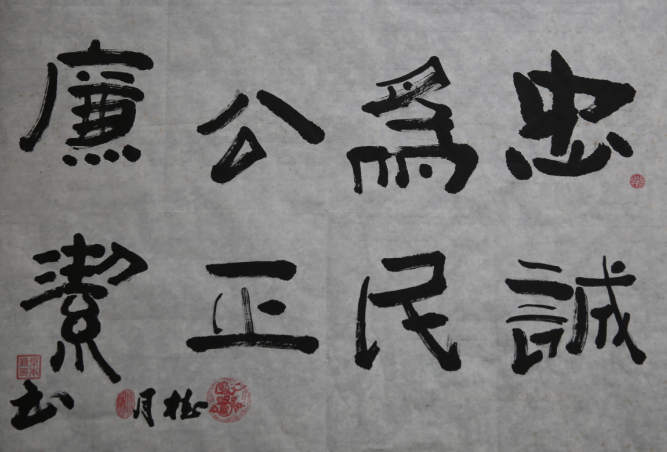 忠誠
為民
公正
廉潔
月
书